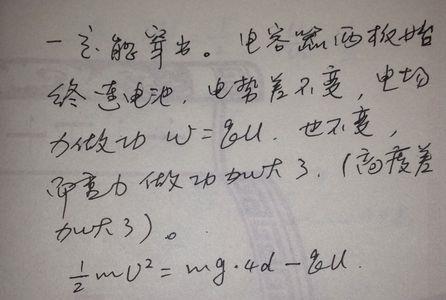 一定能穿出。电容器两板始
终连电池，电势差不变，电场
力做功 W=qU. 也不变，
而重力做功加大了.（高度差
加大了）。
½mv²=mg·4d-qU.